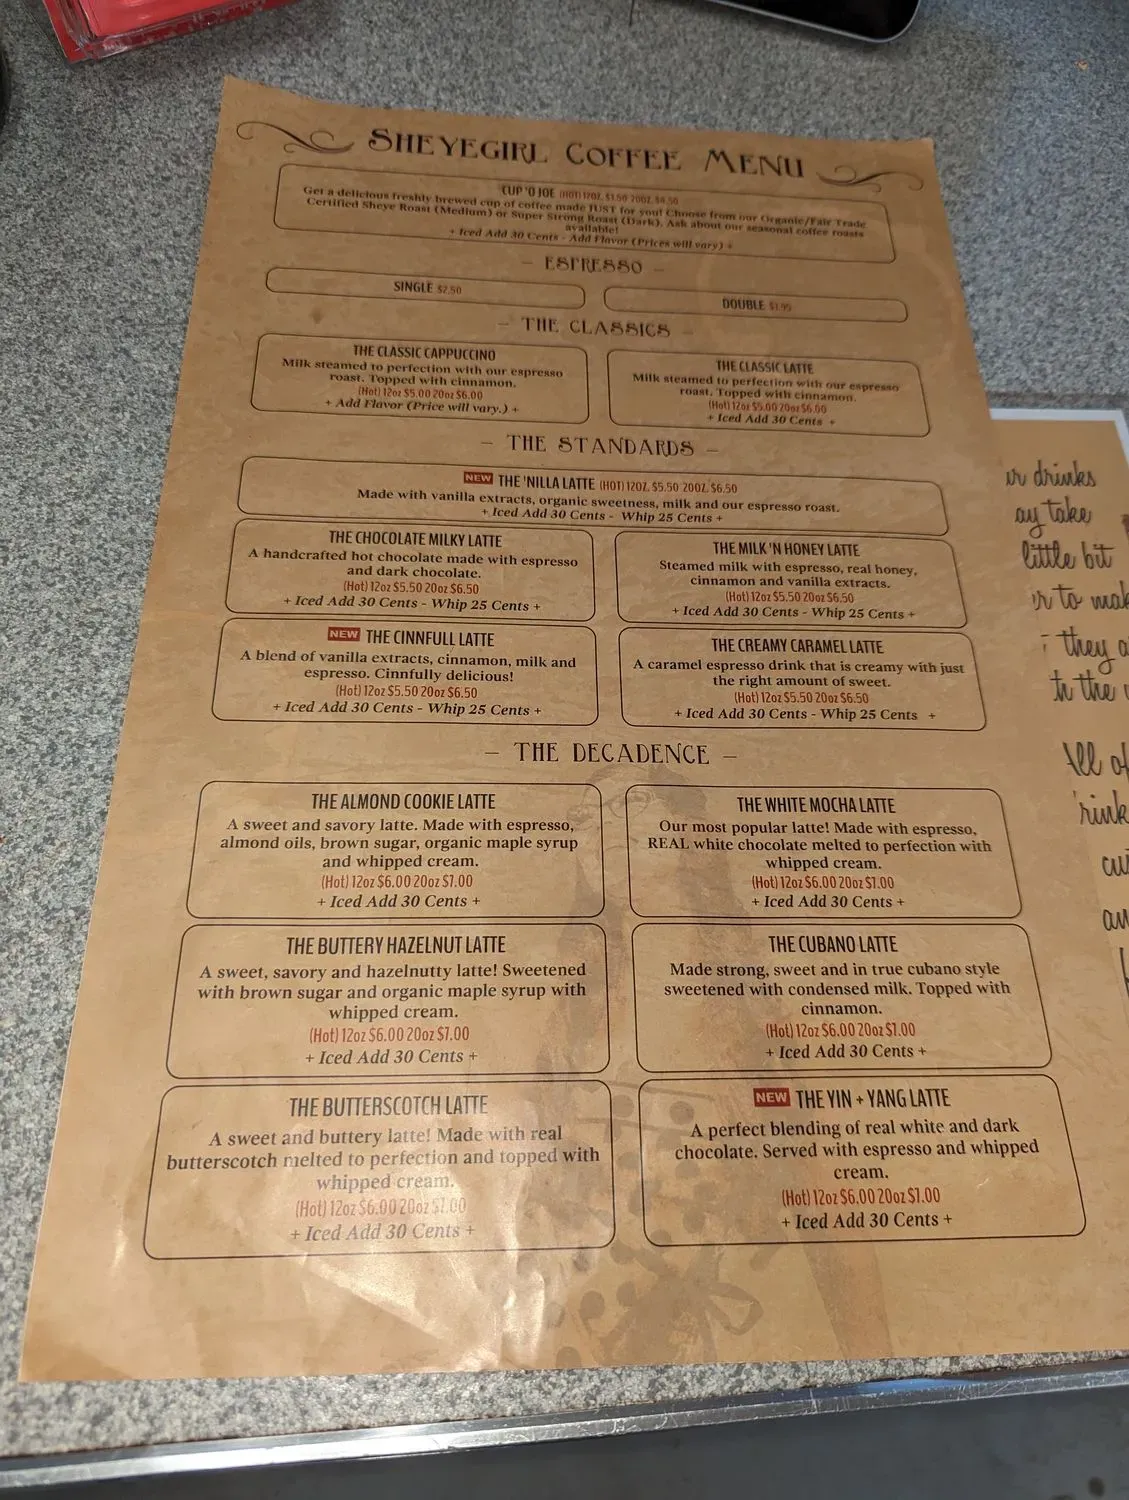 SHEYEGIRL COFFEE MENU
CUP 'O JOE (HOT) 12OZ. $1.50 20OZ.
Get a delicious freshly brewed cup of coffee made JUST for you! Choose from our Organic/Fair Trade
Certified Sheye Roast (Medium) or Super Strong Roast (Dark). Ask about our seasonal coffee roasts
available!
+ Iced Add 30 Cents - Add Flavor (Prices will vary) +
- ESPRESSO -
SINGLE $2.50
DOUBLE
- THE CLASSICS -
THE CLASSIC CAPPUCCINO
Milk steamed to perfection with our espresso
roast. Topped with cinnamon.
(Hot) 12oz $5.00 20oz $6.00
+ Add Flavor (Price will vary.) +
THE CLASSIC LATTE
Milk steamed to perfection with our espresso
roast. Topped with cinnamon.
(Hot) 12oz $5.00 20oz $6.00
+ Iced Add 30 Cents +
- THE STANDARDS -
NEW THE 'NILLA LATTE (HOT) 12OZ. $5.50 20OZ. $6.50
Made with vanilla extracts, organic sweetness, milk and our espresso roast.
+ Iced Add 30 Cents - Whip 25 Cents +
THE CHOCOLATE MILKY LATTE
A handcrafted hot chocolate made with espresso
and dark chocolate.
(Hot) 12oz $5.50 20oz $6.50
+ Iced Add 30 Cents - Whip 25 Cents +
THE MILK 'N HONEY LATTE
Steamed milk with espresso, real honey,
cinnamon and vanilla extracts.
(Hot) 12oz $5.50 20oz $6.50
+ Iced Add 30 Cents - Whip 25 Cents +
NEW THE CINNFULL LATTE
A blend of vanilla extracts, cinnamon, milk and
espresso. Cinnfully delicious!
(Hot) 12oz $5.50 20oz $6.50
+ Iced Add 30 Cents - Whip 25 Cents +
THE CREAMY CARAMEL LATTE
A caramel espresso drink that is creamy with just
the right amount of sweet.
(Hot) 12oz $5.50 20oz $6.50
+ Iced Add 30 Cents - Whip 25 Cents +
- THE DECADENCE -
THE ALMOND COOKIE LATTE
A sweet and savory latte. Made with espresso,
almond oils, brown sugar, organic maple syrup
and whipped cream.
(Hot) 12oz $6.00 20oz $7.00
+ Iced Add 30 Cents +
THE WHITE MOCHA LATTE
Our most popular latte! Made with espresso,
REAL white chocolate melted to perfection with
whipped cream.
(Hot) 12oz $6.00 20oz $7.00
+ Iced Add 30 Cents +
THE BUTTERY HAZELNUT LATTE
A sweet, savory and hazelnutty latte! Sweetened
with brown sugar and organic maple syrup with
whipped cream.
(Hot) 12oz $6.00 20oz $7.00
+ Iced Add 30 Cents +
THE CUBANO LATTE
Made strong, sweet and in true cubano style
sweetened with condensed milk. Topped with
cinnamon.
(Hot) 12oz $6.00 20oz $7.00
+ Iced Add 30 Cents +
THE BUTTERSCOTCH LATTE
A sweet and buttery latte! Made with real
butterscotch melted to perfection and topped with
whipped cream.
(Hot) 12oz $6.00 20oz $7.00
+ Iced Add 30 Cents +
NEW THE YIN + YANG LATTE
A perfect blending of real white and dark
chocolate. Served with espresso and whipped
cream.
(Hot) 12oz $6.00 20oz $7.00
+ Iced Add 30 Cents +
drinks
take
little bit
to
they
the
of